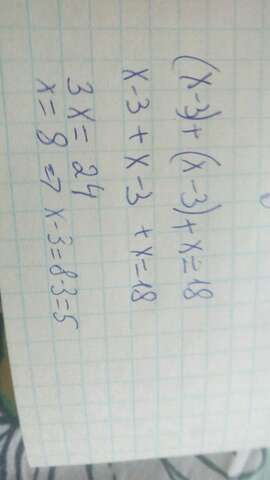 (x-3)+(x-3)+x=18
x-3+x-3+x=18
3x=24
x=8 => x-3=8-3=5